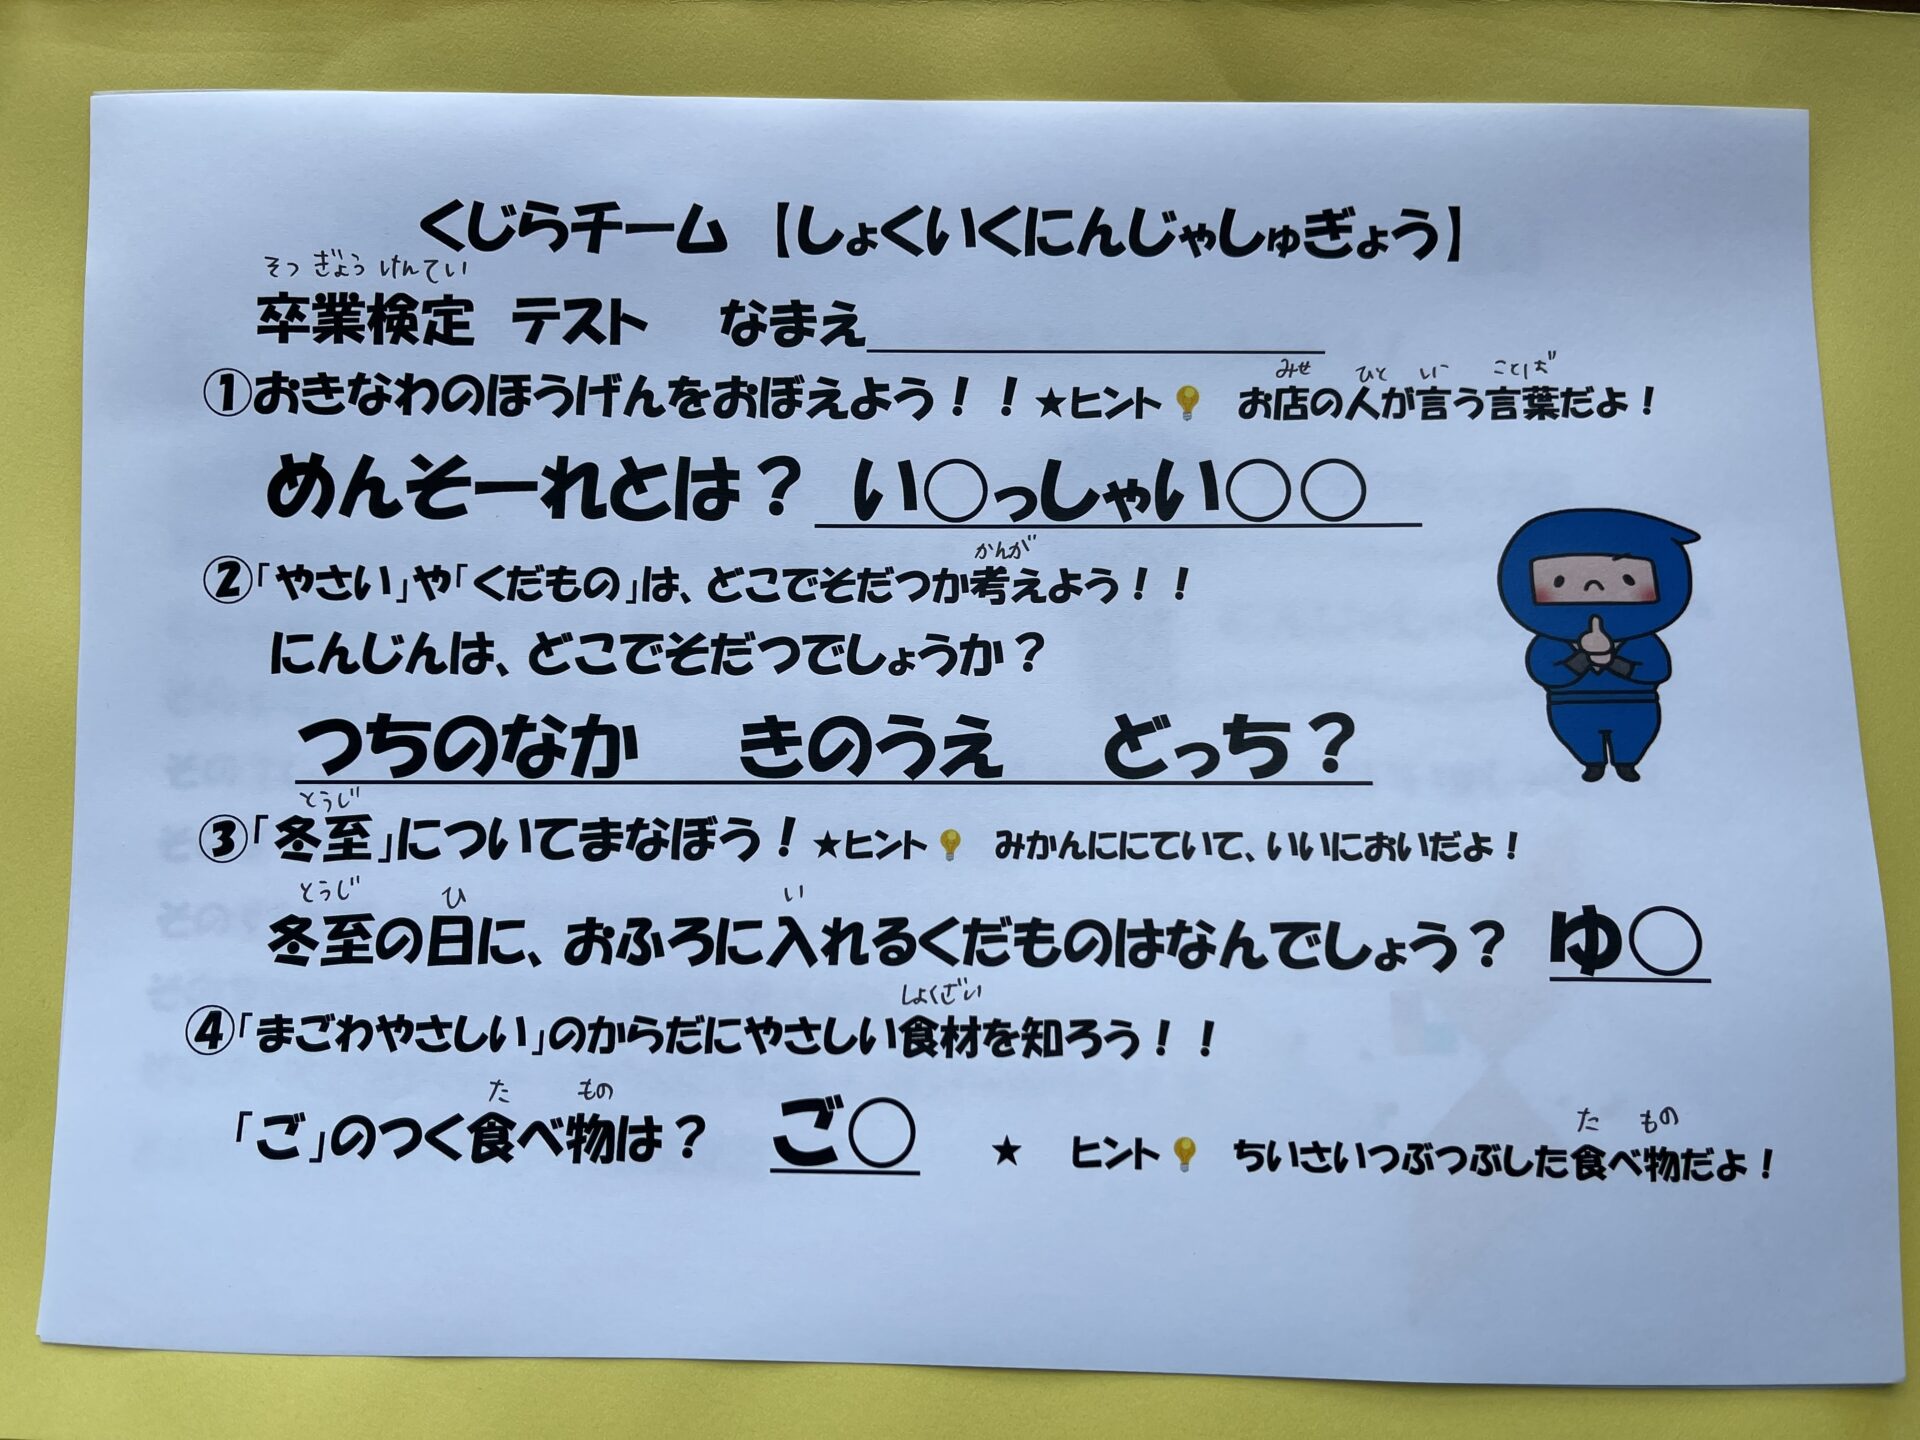 くじらチーム 【しょくいくにんじゃしゅぎょう】
そつ ぎょう けんてい
卒業検定 テスト なまえ
みせ ひと い ことば
①おきなわのほうげんをおぼえよう！！★ヒント💡 お店の人が言う言葉だよ！
めんそーれとは？ い○っしゃい○○
かんが
②「やさい」や「くだもの」は、どこでそだつか考えよう！！
にんじんは、どこでそだつでしょうか？
つちのなか きのうえ どっち？
とうじ
③「冬至」についてまなぼう！★ヒント💡 みかんににていて、いいにおいだよ！
とうじ ひ い
冬至の日に、おふろに入れるくだものはなんでしょう？ ゆ○
しょくざい
④「まごわやさしい」のからだにやさしい食材を知ろう！！
た もの
「ご」のつく食べ物は？ ご○
た もの
★ ヒント💡 ちいさいつぶつぶした食べ物だよ！